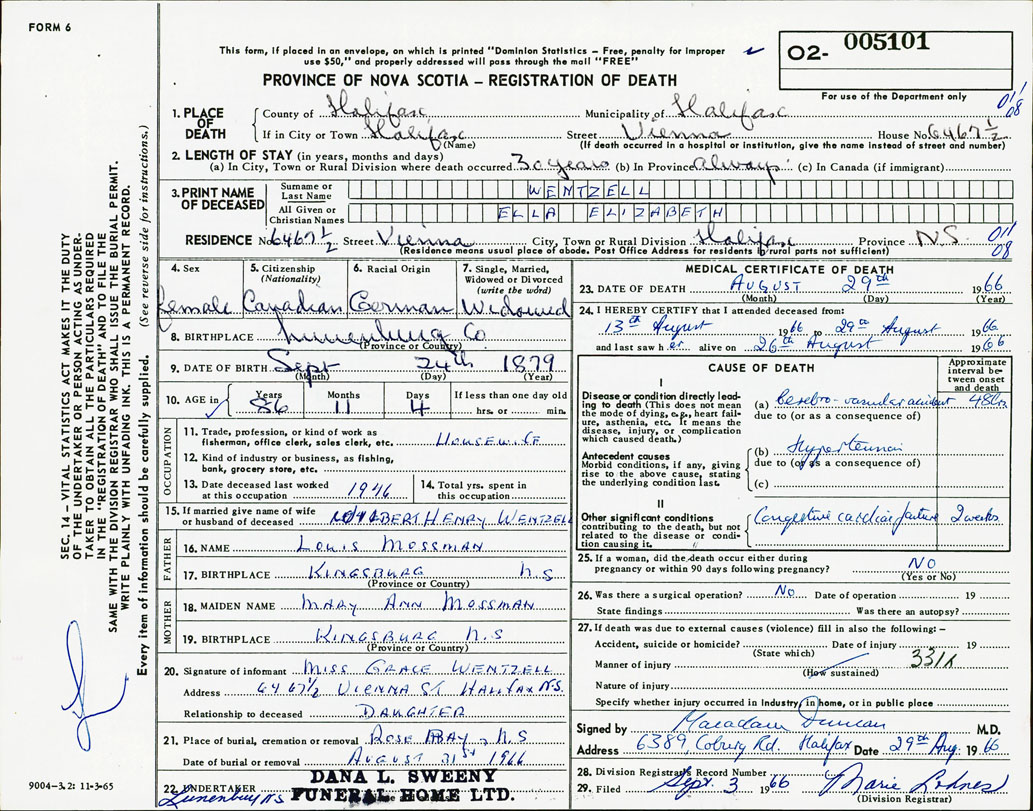 FORM 6
This form, if placed in an envelope, on which is printed "Dominion Statistics – Free, penalty for improper
use $50," and properly addressed will pass through the mail "FREE"
O2- 005101
For use of the Department only
PROVINCE OF NOVA SCOTIA – REGISTRATION OF DEATH
011
08
1. PLACE OF DEATH
County of Halifax Municipality of Halifax
If in City or Town Halifax Street Vienna House No. 6467 1/2
(Name) (If death occurred in a hospital or institution, give the name instead of street and number)
2. LENGTH OF STAY (in years, months and days)
(a) In City, Town or Rural Division where death occurred 30 years (b) In Province Always (c) In Canada (if immigrant)
3. PRINT NAME OF DECEASED
Surname or Last Name WENTZELL
All Given or Christian Names ELLA ELIZABETH
RESIDENCE No. 6467 1/2 Street Vienna City, Town or Rural Division Halifax Province N.S. 011
08
(Residence means usual place of abode. Post Office Address for residents in rural parts not sufficient)
4. Sex
female
5. Citizenship (Nationality)
Canadian
6. Racial Origin
German
7. Single, Married, Widowed or Divorced (write the word)
Widowed
8. BIRTHPLACE Lunenburg Co
(Province or Country)
9. DATE OF BIRTH Sept 24th 1879
(Month) (Day) (Year)
10. AGE in Years 86 Months 11 Days 4 If less than one day old hrs. or min.
OCCUPATION
11. Trade, profession, or kind of work as
fisherman, office clerk, sales clerk, etc. HOUSEWIFE
12. Kind of industry or business, as fishing,
bank, grocery store, etc.
13. Date deceased last worked
at this occupation 1946
14. Total yrs. spent in
this occupation
15. If married give name of wife
or husband of deceased ALBERT HENRY WENTZELL
FATHER
16. NAME LOUIS MOSSMAN
17. BIRTHPLACE KINGSBURG N.S
(Province or Country)
MOTHER
18. MAIDEN NAME MARY ANN MOSSMAN
19. BIRTHPLACE KINGSBURG N.S
(Province or Country)
20. Signature of informant MISS GRACE WENTZELL
Address 6467 1/2 VIENNA ST HALIFAX N.S.
Relationship to deceased DAUGHTER
21. Place of burial, cremation or removal ROSE BAY, N.S
Date of burial or removal AUGUST 31st 1966
22. UNDERTAKER DANA L. SWEENY
FUNERAL HOME LTD.
Lunenburg N.S
MEDICAL CERTIFICATE OF DEATH
23. DATE OF DEATH AUGUST 29th 1966
(Month) (Day) (Year)
24. I HEREBY CERTIFY that I attended deceased from:
13th August 1966 to 29th August 1966
and last saw her alive on 26th August 1966
CAUSE OF DEATH
Approximate interval between onset and death
I
Disease or condition directly leading to death (This does not mean the mode of dying, e.g., heart failure, asthenia, etc. It means the disease, injury, or complication which caused death.)
(a) Cerebro-vascular accident 48 hrs
due to (or as a consequence of)
Antecedent causes
Morbid conditions, if any, giving rise to the above cause, stating the underlying condition last.
(b) Hypertension
due to (or as a consequence of)
(c)
II
Other significant conditions contributing to the death, but not related to the disease or condition causing it.
Congestive cardiac failure 2 weeks
25. If a woman, did the death occur either during
pregnancy or within 90 days following pregnancy? NO
(Yes or No)
26. Was there a surgical operation? No Date of operation 19
State findings Was there an autopsy?
27. If death was due to external causes (violence) fill in also the following: –
Accident, suicide or homicide? Date of injury 19
(State which)
Manner of injury 331X
(How sustained)
Nature of injury
Specify whether injury occurred in Industry, in home, or in public place
Signed by Macadam Duncan M.D.
Address 6389 Coburg Rd. Halifax Date 29th Aug. 1966
28. Division Registrar's Record Number
29. Filed Sept. 3 1966 Marie
(Division Registrar)
SEC. 14 – VITAL STATISTICS ACT MAKES IT THE DUTY
OF THE UNDERTAKER OR PERSON ACTING AS UNDER-
TAKER TO OBTAIN ALL THE PARTICULARS REQUIRED
IN THE "REGISTRATION OF DEATH" AND TO FILE THE
SAME WITH THE DIVISION REGISTRAR WHO SHALL ISSUE THE BURIAL PERMIT.
WRITE PLAINLY WITH UNFADING INK. THIS IS A PERMANENT RECORD.
Every item of information should be carefully supplied. (See reverse side for instructions.)
9004-3.2: 11-3-65